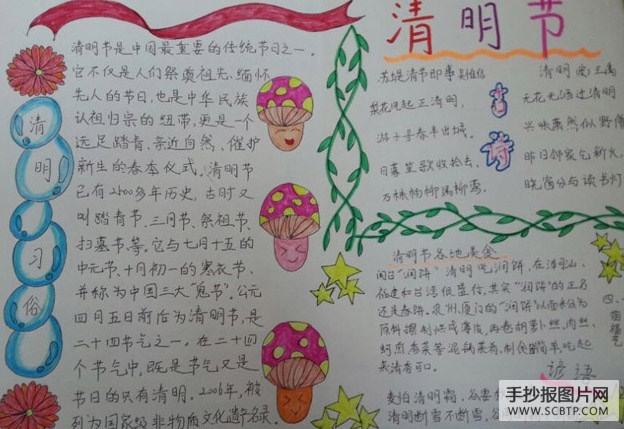 清明节
清明习俗
清明节是中国最重要的传统节日之一。
它不仅是人们祭奠祖先、缅怀
先人的节日,也是中华民族
认祖归宗的纽带,更是一个
远足踏青、亲近自然、催护
新生的春季仪式。清明节
已有2500多年历史,古时又
叫踏青节、三月节、祭祖节、
扫墓节等,它与七月十五的
中元节、十月初一的寒衣节、
并称为中国三大"鬼节"。公元
四月五日前后为清明节,是
二十四节气之一。在二十四
个节气中,既是节气又是
节日的只有清明。2006年,被
列为国家级非物质文化遗产名录。
古诗
苏堤清明即事 吴惟信
梨花风起正清明,
游子寻春半出城。
日暮笙歌收拾去,
万株杨柳属流莺。
清明 王禹
无花无酒过清明
兴味萧然似野僧
昨日邻家乞新火,
晓窗分与读书灯
清明节各地美食
闽台"润饼" 清明吃润饼,在
福建和台湾很盛行,其实"润饼"的正名
还是春饼。泉州、厦门的"润饼"以面粉为
原料擦制烘成薄皮,再卷胡萝卜丝、肉丝、
蚵煎、香菜等混锅菜肴,制食简单吃起
来清香可口。
谚语
麦怕清明霜,谷要
清明断雪不断雪,谷
手抄报图片网
WWW.SCBTP.COM